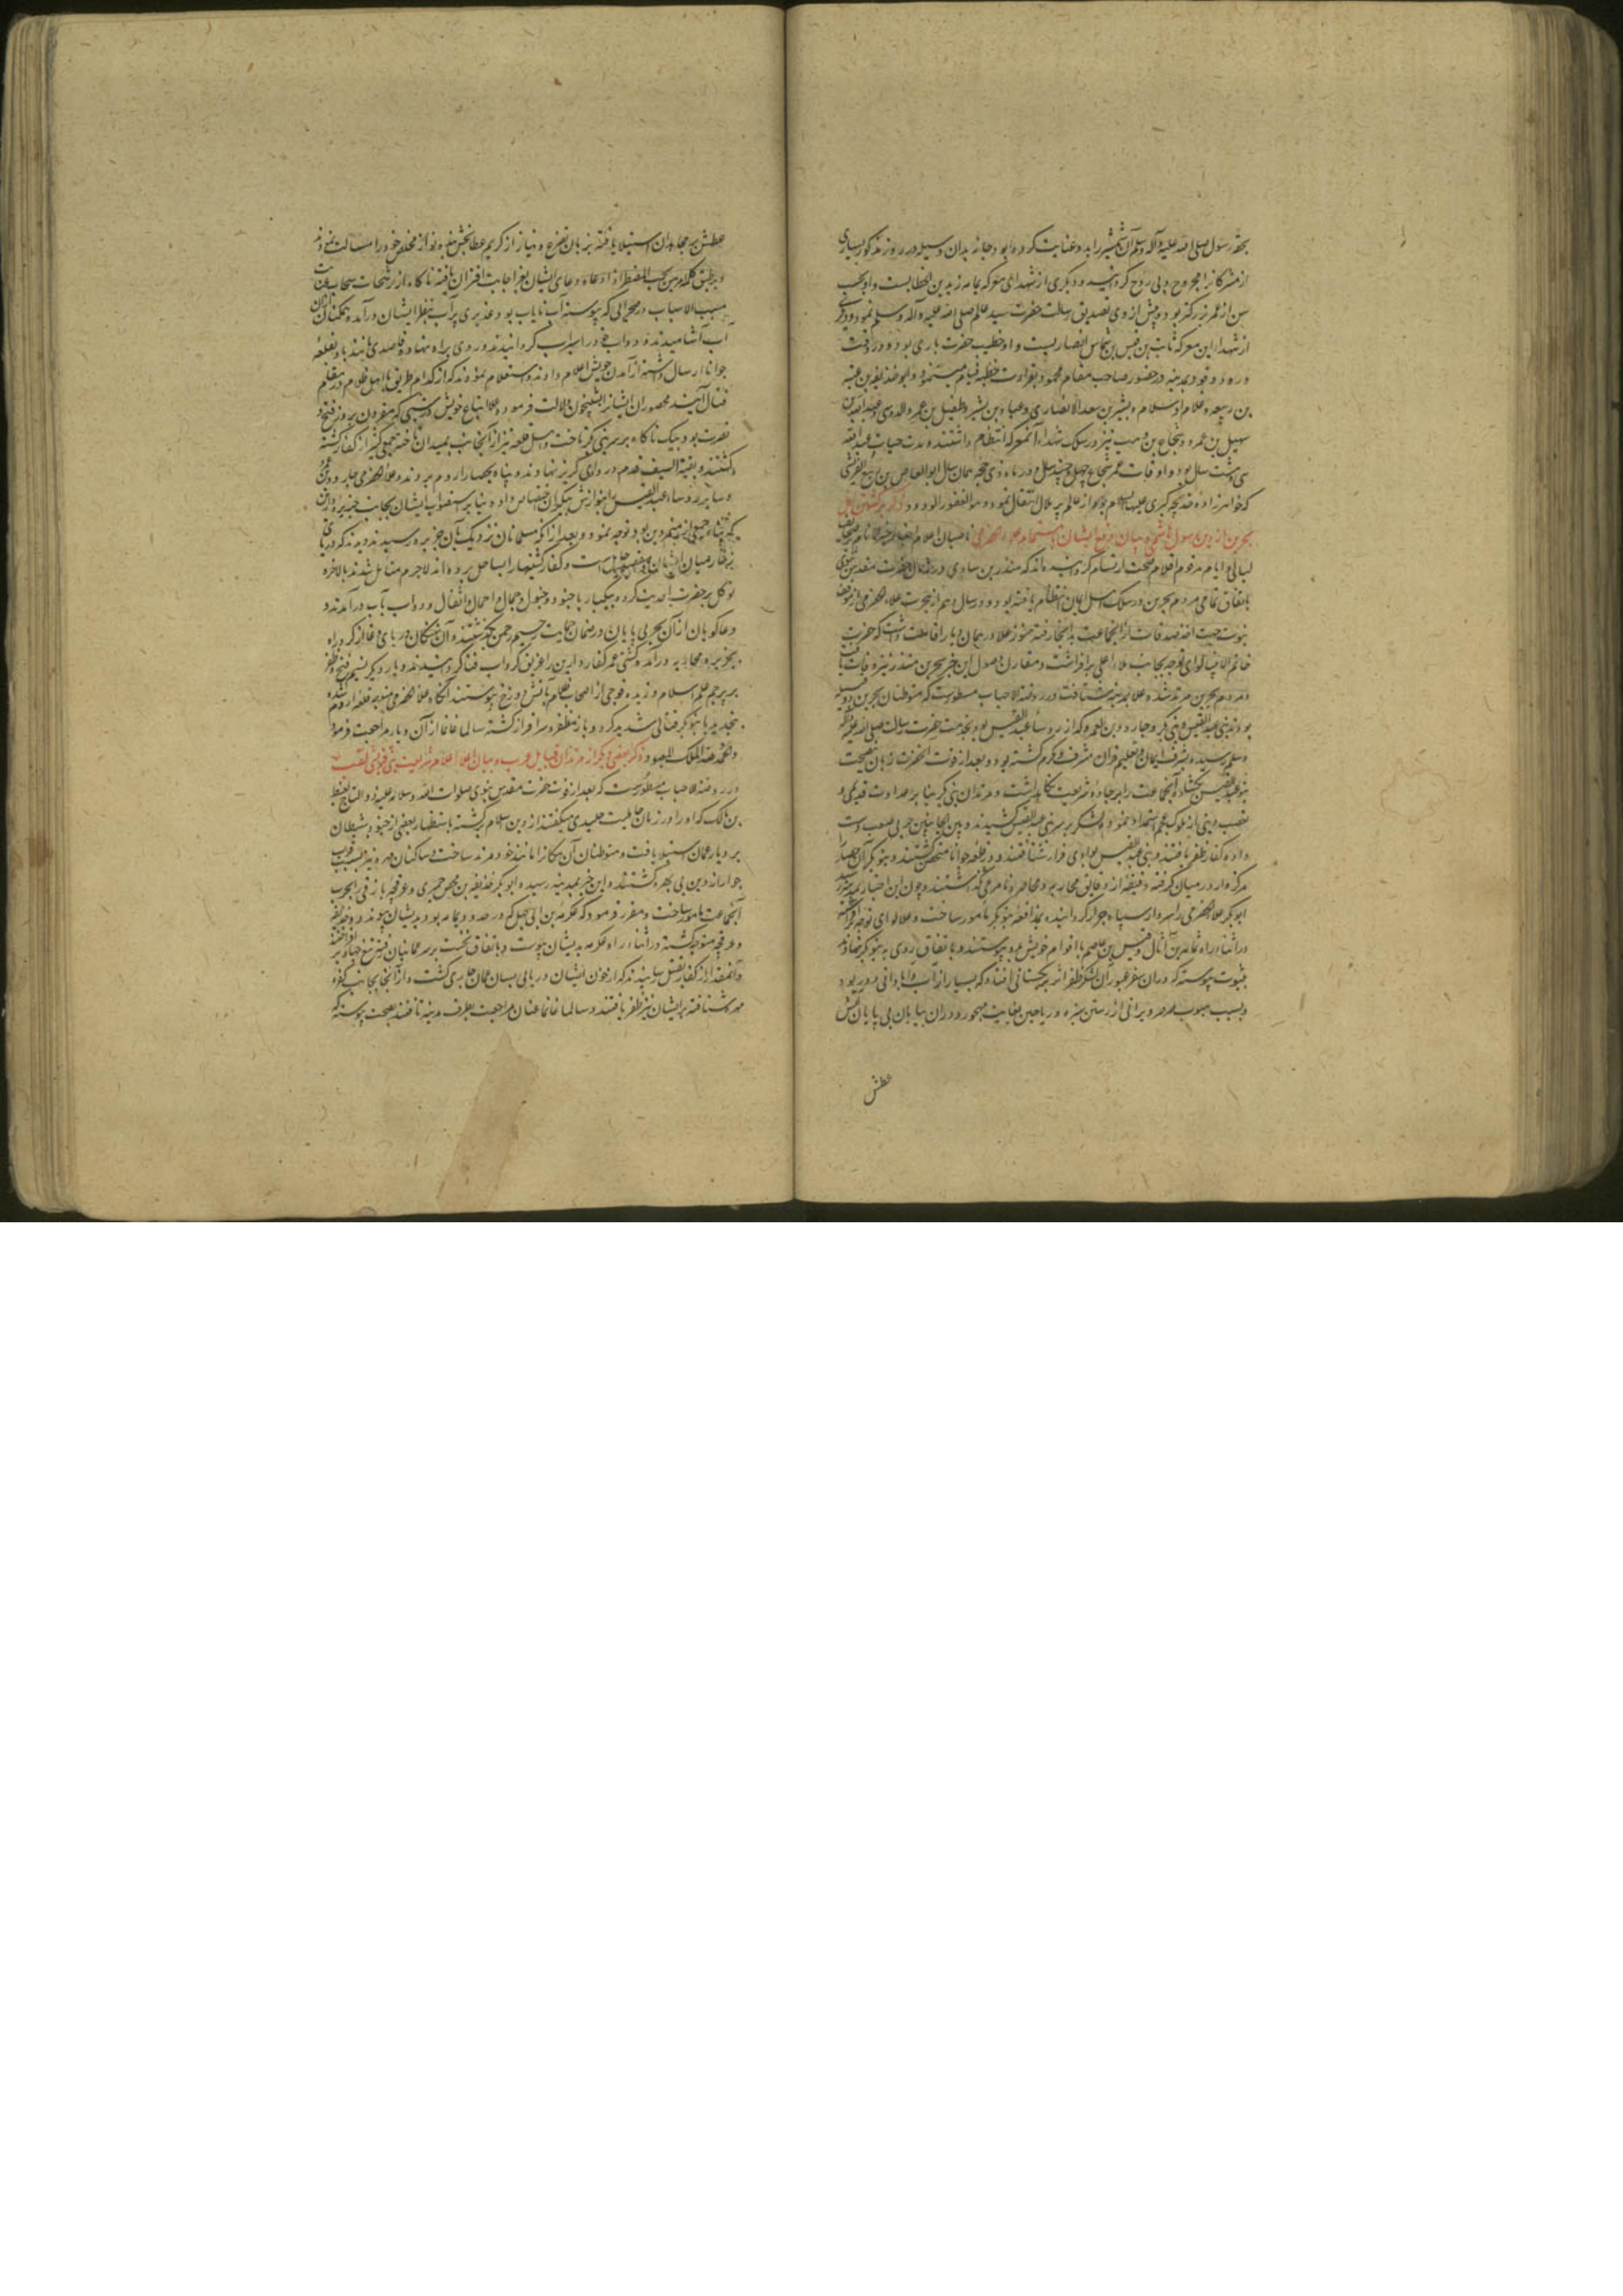 بحقه رسول صلی الله علیه و آله و سلم آن شمشیر را بدو عنایت کرده بود و جانبازیدان وسیله در روز مذکور بسیاری
از مشرکان را مجروح و بی روح گردانید و دیگری از شهدای معرکه یمامه زید بن الخطابست و او بحسب
سن از عمر بزرگتر بود و پیش از وی تصدیق رسالت حضرت سید عالم صلی الله علیه و آله و سلم نموده و دیگری
از شهداء این معرکه ثابت بن قیس بن شماس انصاریست و او خطیب حضرت باری بود و در وقت
ورود وفود بمدینه در حضور صاحب مقام محمود بقراءت خطبه قیام مینمود و ابو حذیفه بن عتبه
بن ربیعه و غلام او سالم و بشیر بن سعد الانصاری و عباد بن بشر و طفیل بن عمرو الدوسی و عبدالله بن
سهیل بن عمرو و شجاع بن وهب نیز در سلک شهداء آنمعرکه انتظام داشتند و مدت حیات عبدالله
سی و هشت سال بود و اوقات عمر شجاع چهل و چند سال و در ماه ذی حجه همان سال ابوالعاص بن ربیع القرشی
که خواهر زاده خدیجه کبری علیها السلام بود از عالم پر ملال انتقال نمود و هو الغفور الودود ذکر برگشتن اهل
بحرین از دین رسول هاشمی و بیان دفع ایشان باهتمام علاء الحضرمی ناصبان اعلام اخبار خیر الانام بر صحایف
لیالی و ایام مرقوم اقلام صحت ارتسام گردانیده اند که منذر بن ساوی در زمان حضرت مقدس نبوی
باتفاق تمامی مردم بحرین در سلک اهل ایمان انتظام یافته بود و در سال نهم از هجرت علاء حضرمی از موقف
نبوت جهت اخذ صدقات از آنجماعت بدانجا رفته هنوز علا در همان دیار اقامت داشت که حضرت
خاتم الانبیا لوای توجه بجانب ملاء اعلی برافراشت و مقارن وصول این خبر ببحرین منذر نیز وفات یافت
و مردم بحرین مرتد شده علا بمدینه شتافت و در روضة الاحباب مسطورست که متوطنان بحرین دو قبیله
بودند بنی عبدالقیس و بنی بکر و جارود بن المعلی که از رؤساء عبدالقیس بود بخدمت حضرت رسالت صلی الله علیه و آله
و سلم رسیده بشرف ایمان و تعلیم قرآن مشرف و مکرم گشته بود و بعد از فوت آنحضرت زبان بنصیحت
بنو عبدالقیس بگشاد و آنجماعت را بر جاده شریعت نگاه داشت و مرتدان بنی بکر بنا بر عداوت قدیمی و
تعصب دینی از ملوک عجم استمداد نموده لشکر بر سر بنی عبدالقیس کشیدند و بین الجانبین حربی صعب دست
داده کفار ظفر یافتند و بنی عبدالقیس بوادی فرار شتافتند و در قلعه جواثا متحصن گشتند و بنو بکر آن حصار را
مرکز وار در میان گرفته دقیقه از دقایق محاربه و محاصره نامرعی نگذاشتند و چون این اخبار بمدینه رسید
ابوبکر علاء حضرمی را سردار سپاه جرار گردانیده بمدافعه بنو بکر مامور ساخت و علا لوای توجه افراشته
در اثناء راه ثمامه بن آثال و قیس بن عاصم با اقوام خویش بدو پیوستند و باتفاق روی به بنو بکر نهادند
بثبوت پیوسته که در آن سفر عبور آن لشکر ظفر اثر بریگستانی افتاد که بسیار از آب و آبادانی دور بود
و بسبب هبوب صرصر ویرانی از رستن سبزه و ریاحین بغایت مهجور و در آن بیابان بی پایان عطش
عطش
عطش بر مجاهدان استیلا یافته بزبان تضرع و نیاز از کریم عطابخش بنده نواز مخلص خود را مسالت نمودند
و بر طبق کلام من یجیب المضطر اذا دعاه دعای ایشان بعز اجابت اقتران یافته ناگاه از رشحات سحاب عنایت
مسبب الاسباب در صحرائی که پیوسته آب نایاب بود غدیری پر آب بنظر ایشان درآمد و همگنان از آن
آب آشامیدند و دواب خود را سیراب گردانیدند و روی براه نهاده قاصدی مانند باد بقلعه
جواثا ارسال داشته از آمدن خویش اعلام دادند و استعلام نمودند که از کدام طریق با اهل ظلام در مقام
قتال آیند محصوران ایشانرا بشبیخون دلالت فرموده علا با اتباع خویش در شبی که مقرون بروز فتح و
نصرت بود بیک ناگاه بر سر بنی بکر تاخت و اهل قلعه نیز از آنجانب بمیدان تاخته جمعی کثیر از کفار کشته
گشتند و بقیة السیف قدم در وادی گریز نهادند و پناه بحصار اروم بردند و علاء حضرمی جارود را
و سایر رؤساء عبدالقیس را بنوازش بیکران اختصاص داده بنا بر استصواب ایشان بجانب جزیره دارین
که پناه جمعی از منهزمین بود توجه نمود و بعد از آنکه مسلمانان نزدیک بآن جزیره رسیدند دیدند که دریای
زخار میان ایشان و مقصد حایل است و کفار کشتیها را بساحل برده اند لاجرم متامل شدند بالاخره
توکل بر حضرت احدیت کرده بیکبار با جنود و خیول و جمال و احمال و اثقال و دواب بآب درآمدند و
دعا گویان از آن بحر بی پایان در ضمان حمایت رحیم رحمن بگذشتند و آن نهنگان دریای وغا از گرد راه
بجزیره و محاربه درآمده کشتی عمر کفار دارین را غریق گرداب فنا گردانیدند و بار دیگر نسیم فتح و ظفر
بر پرچم علم اسلام وزیده فوجی از اصحاب ظلام بآتش دوزخ پیوستند آنگاه علاء حضرمی متوجه قلعه اروم شده
بتجدید با بنو بکر قتالی شدید کرد و باز مظفر و سرافراز گشته سالما غانما از آن دیار مراجعت فرمود
و الحمد لله الملک المعبود ذکر بعضی دیگر از مرتدان قبایل عرب و بیان اعلاء اعلام شریعت نبی قرشی لقب
در روضة الاحباب مسطورست که بعد از فوت حضرت مقدس نبوی صلوات الله و سلامه علیه ذوالتاج لقیط
بن مالک که او را در زمان جاهلیت جلیدی میگفتند از دین اسلام برگشته باستظهار بعضی از جنود شیطان
بر دیار عمان استیلا یافت و متوطنان آن مکان را مانند خود مرتد ساخت و ساکنان مهره نیز بسبب قرب
جوار از دین بی بهره گشتند و این خبر بمدینه رسیده ابوبکر حذیفه بن محصن حمیری و عرفجه بارقی را بحرب
آنجماعت مامور ساخت و مقرر فرمود که عکرمه بن ابی جهل که در حدود یمامه بود بدیشان پیوندد و حذیفه
و عرفجه متوجه گشته در اثناء راه عکرمه بدیشان پیوست و باتفاق نخست بر سر عمانیان رفته تیغ جهاد برافراختند
و آنمقدار از کفار بقتل رسانیدند که از خون ایشان دریائی بسان عمان جاری گشت و از آنجا بجانب کفره
مهره شتافته بر ایشان نیز ظفر یافتند و سالما غانما عنان مراجعت بطرف مدینه تافتند بصحت پیوسته که